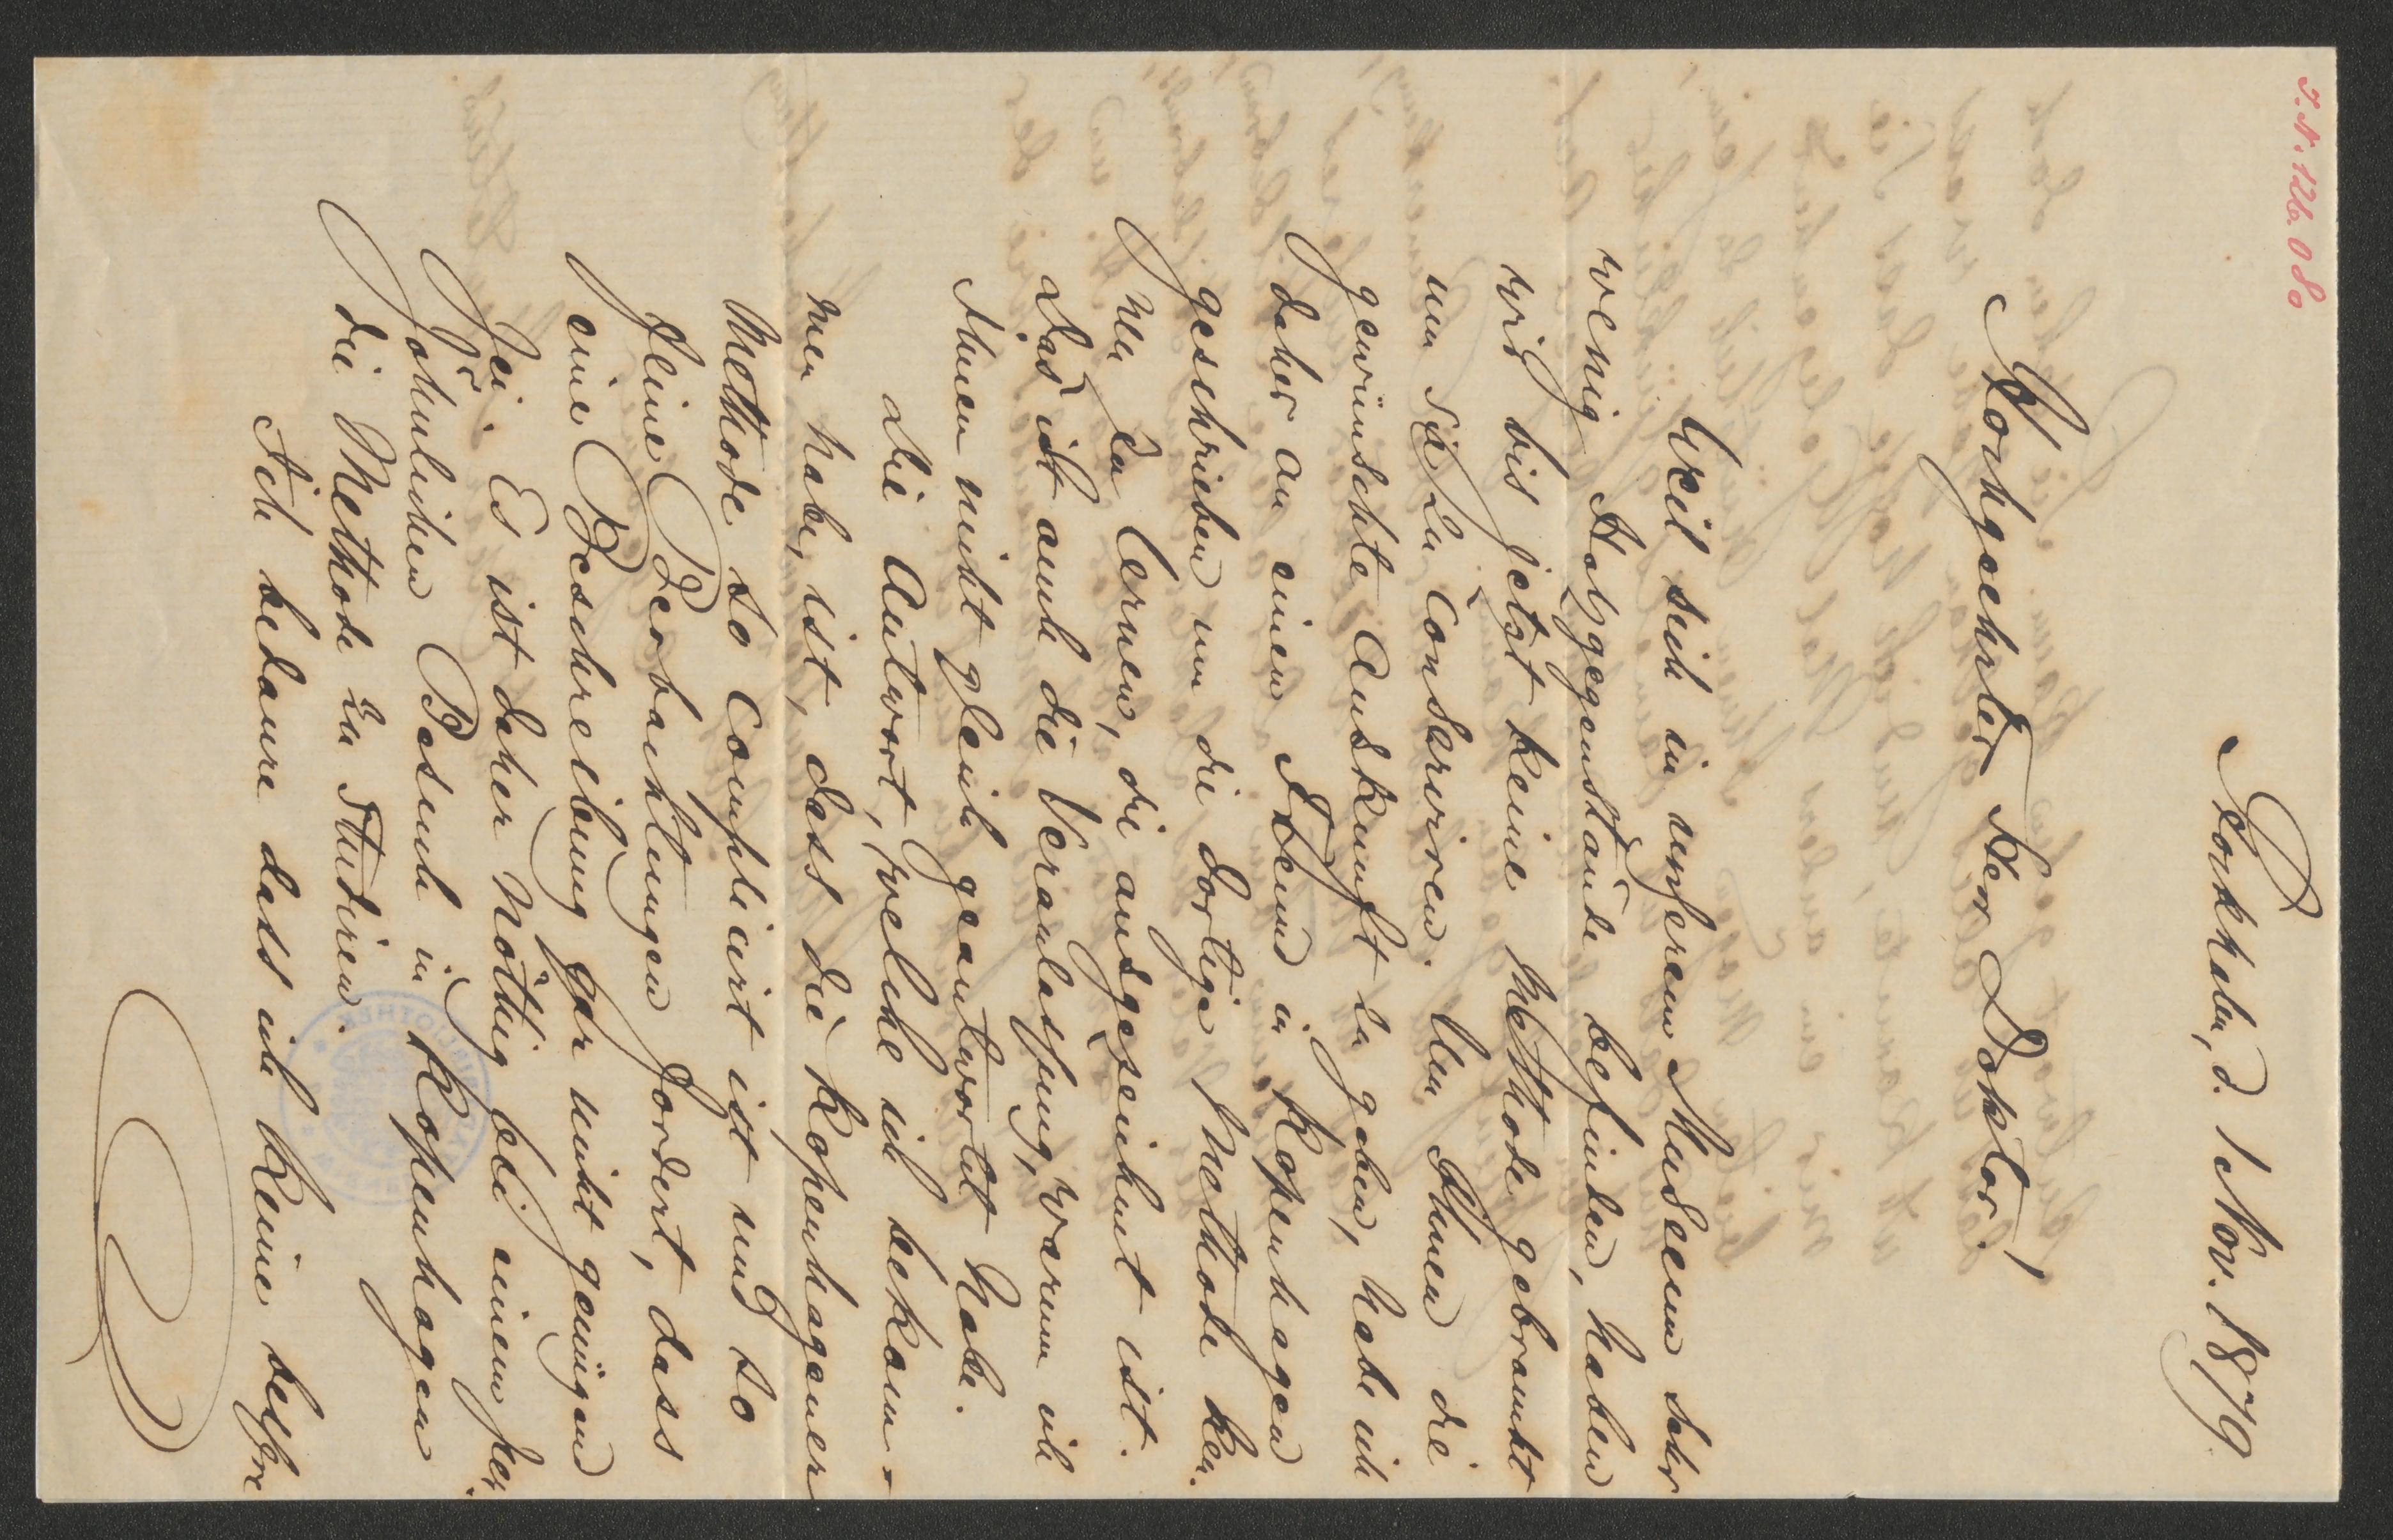 I.N. 126.080
Stockholm, d. 1 Nov. 1879
Hochgeehrter Herr Doktor!
Weil sich in unserem Museum sehr
wenig Holzgegenstände befinden, haben
wir bis jetzt keine Methode gebraucht
um sie zu conserviren. Um Ihnen die
gewünschte Auskunft zu geben, habe ich
daher an einen Freund in Kopenhagen
geschrieben um die dortige Methode ken-
nen zu lernen, die ausgezeichnet ist.
Das ist auch die Veranlassung, warum ich
Ihnen nicht gleich geantwortet habe.
Die Antwort, welche ich bekom-
men habe, ist, dass die Kopenhagener
Methode so complicirt ist und so
kleine Beobachtungen fordert, dass
eine Beschreibung gar nicht genügend
sei. Es ist daher nöthig bei einem per-
söhnlichen Besuch in Kopenhagen
die Methode zu studiren.
Ich bedaure dass ich keine bessere